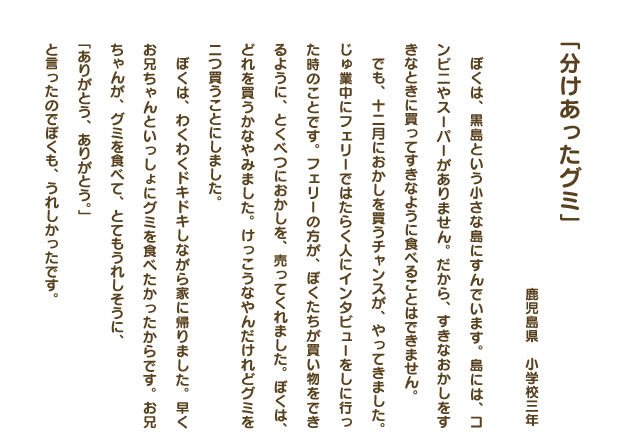 「分けあったグミ」
鹿児島県　小学校三年
　ぼくは、黒島という小さな島にすんでいます。島には、コ
ンビニやスーパーがありません。だから、すきなおかしをす
きなときに買ってすきなように食べることはできません。
　でも、十二月におかしを買うチャンスが、やってきました。
じゅ業中にフェリーではたらく人にインタビューをしに行っ
た時のことです。フェリーの方が、ぼくたちが買い物をでき
るように、とくべつにおかしを、売ってくれました。ぼくは、
どれを買うかなやみました。けっこうなやんだけれどグミを
二つ買うことにしました。
　ぼくは、わくわくドキドキしながら家に帰りました。早く
お兄ちゃんといっしょにグミを食べたかったからです。お兄
ちゃんが、グミを食べて、とてもうれしそうに、
「ありがとう、ありがとう。」
と言ったのでぼくも、うれしかったです。